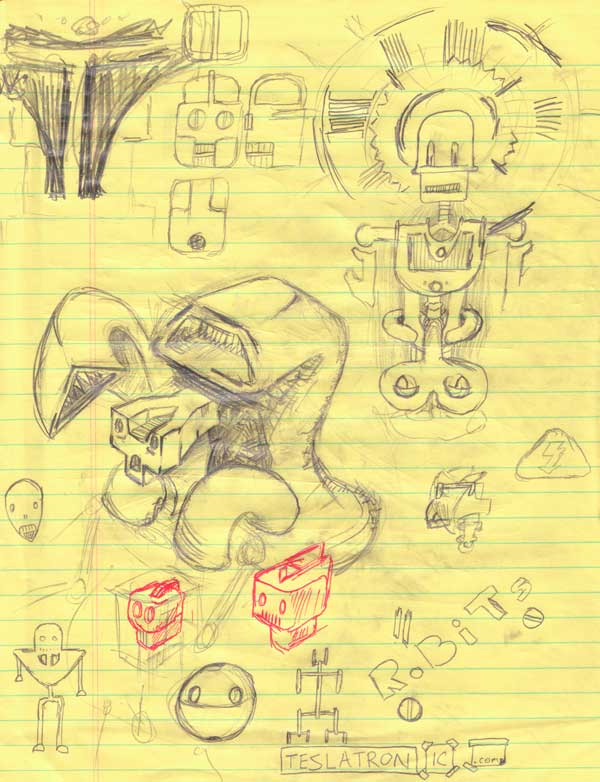 R.BiT
TESLATRON IC .com